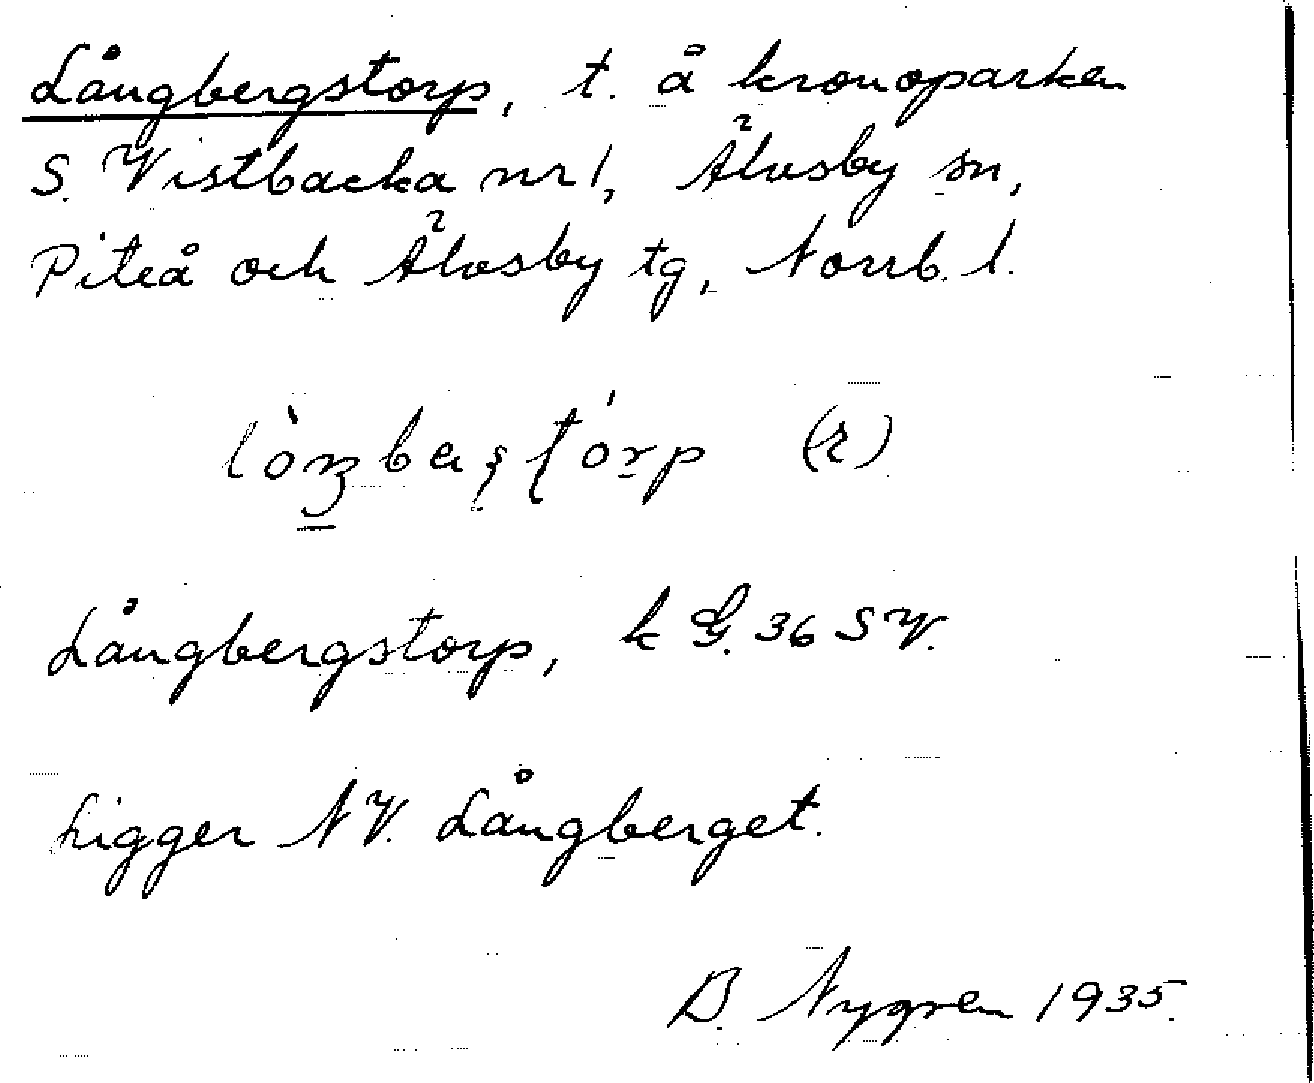 Långbergstorp, t. å kronoparken
S. Vistbäcka nr 1, Älvsby sn,
Piteå och Älvsby tg, Norrb. l.
(r)
Långbergstorp, k G. 36 SV.
Ligger NV. Långberget.
B. Nygren 1935.